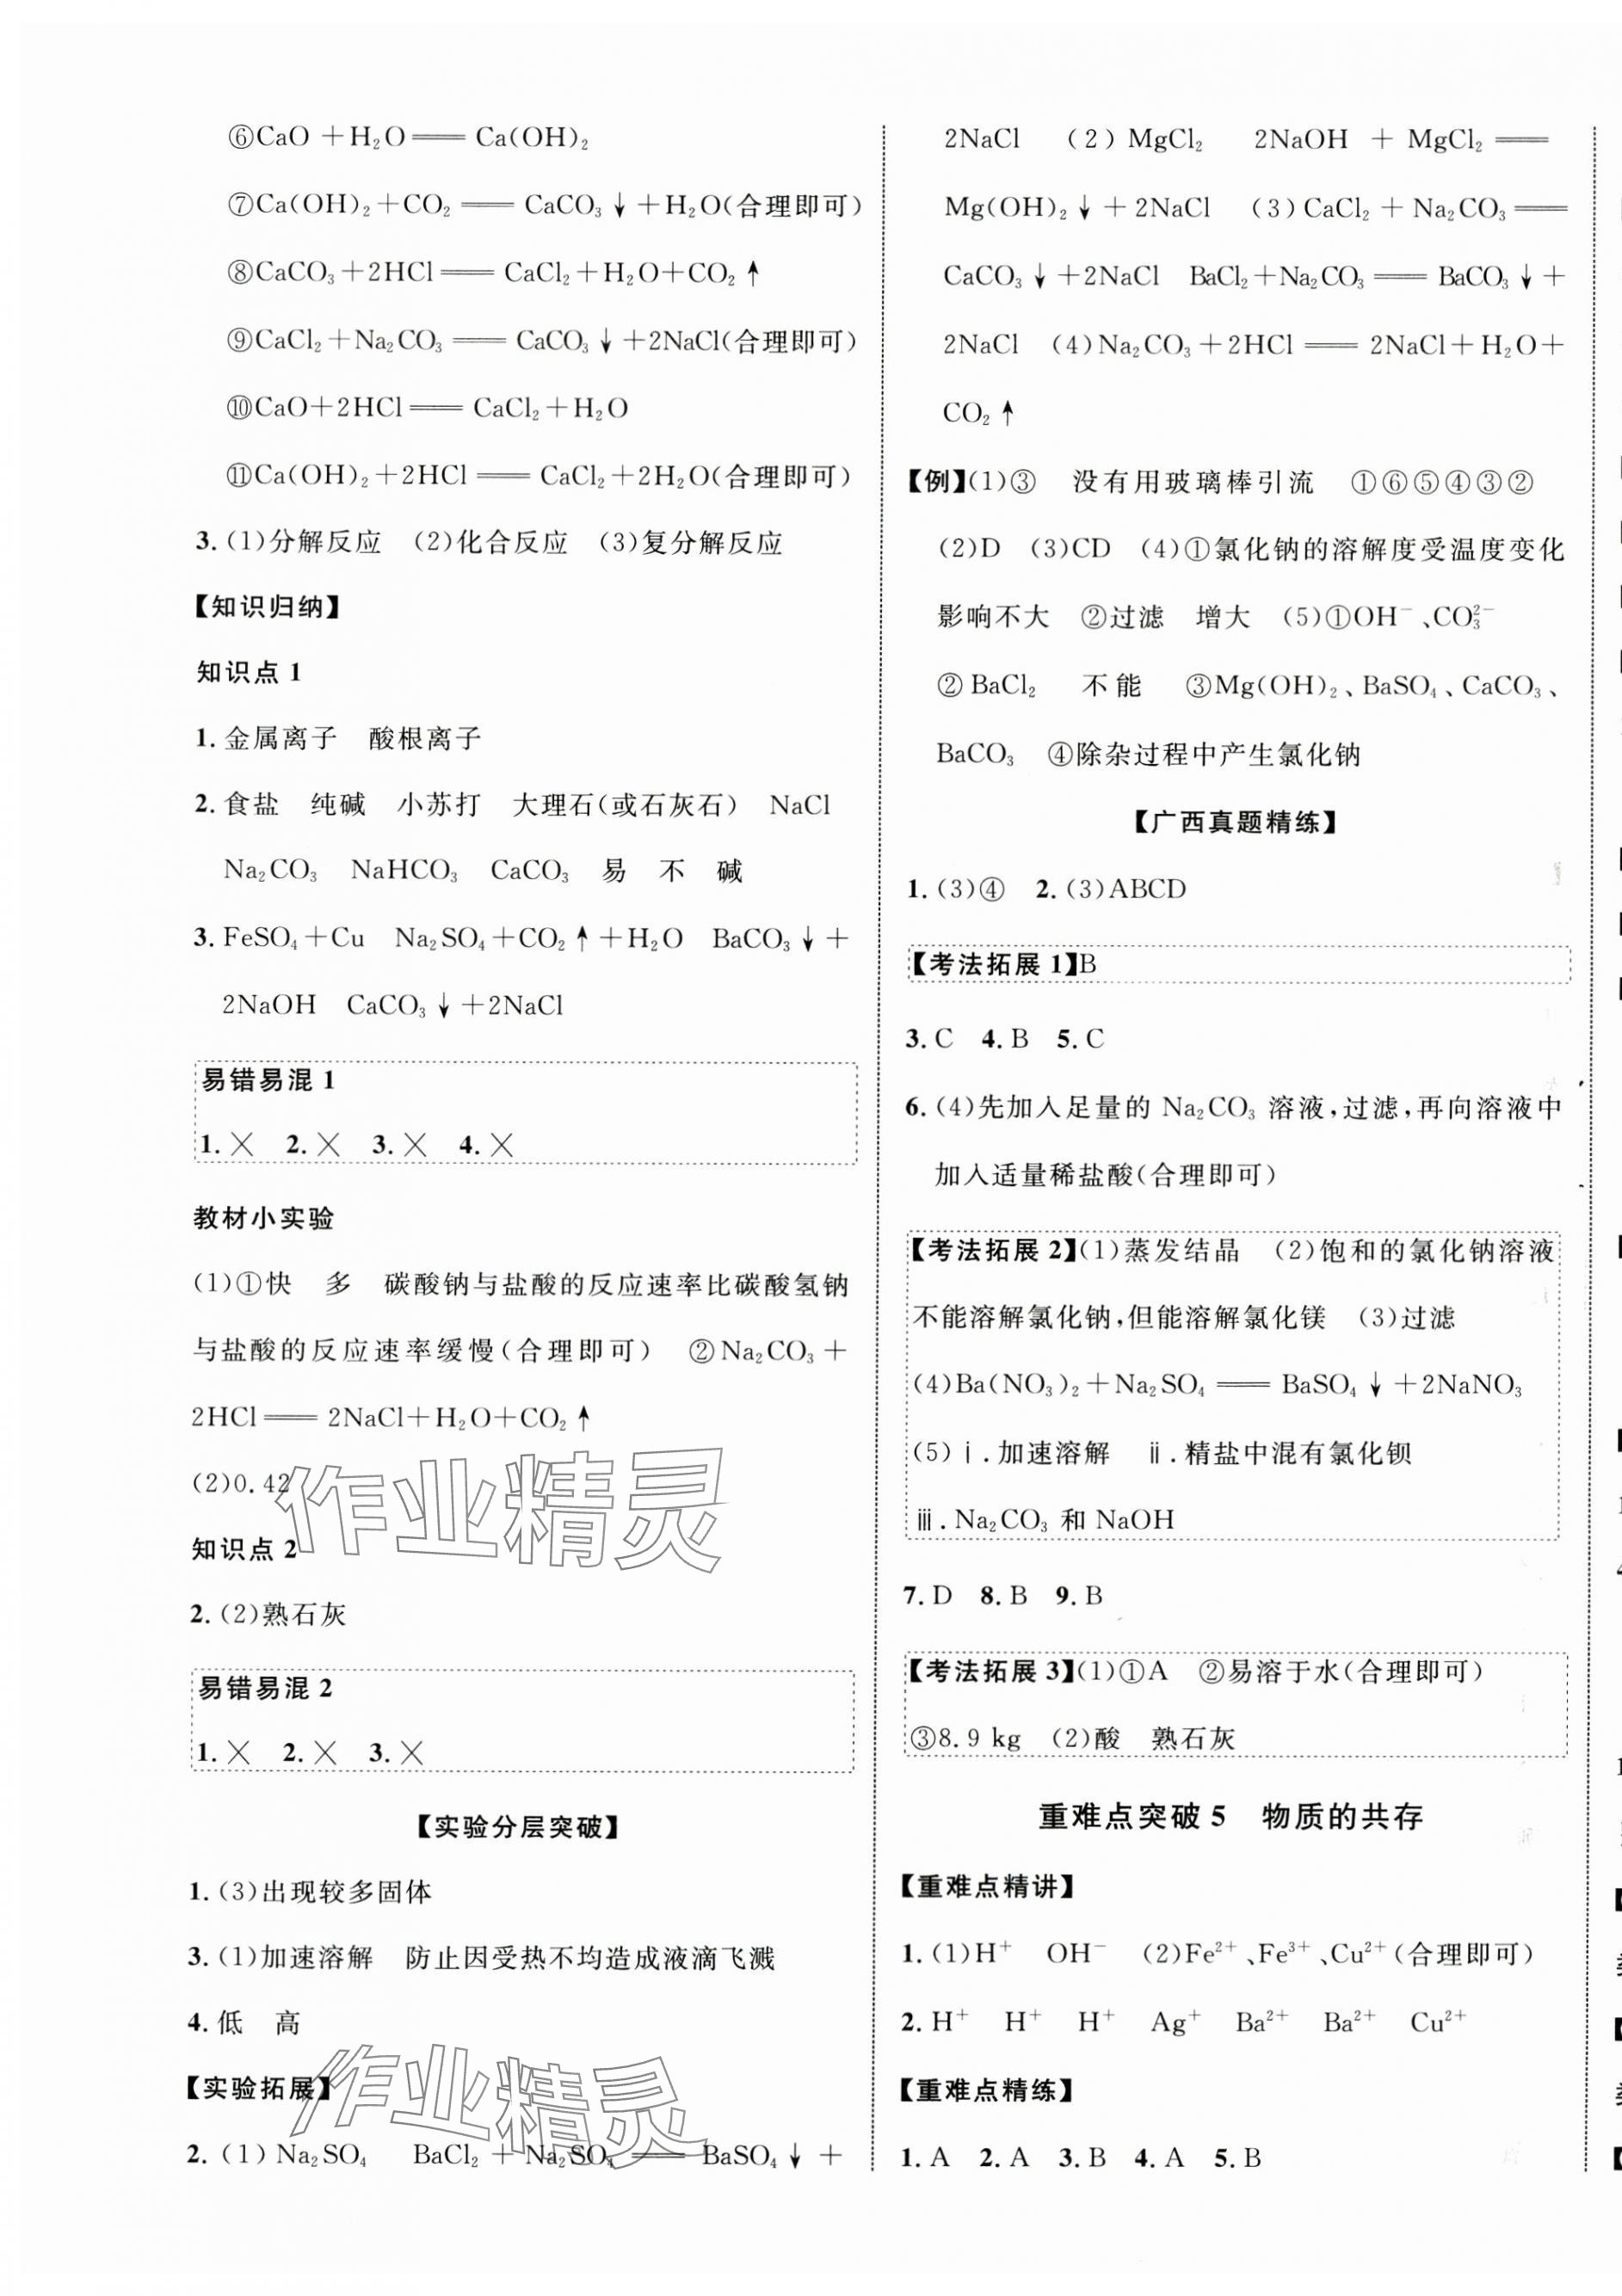 ⑥CaO +H₂O══ Ca(OH)₂
⑦Ca(OH)₂+CO₂ ══ CaCO₃↓+H₂O(合理即可)
⑧CaCO₃+2HCl══ CaCl₂+H₂O+CO₂↑
⑨CaCl₂+Na₂CO₃ ══ CaCO₃↓+2NaCl(合理即可)
⑩CaO+2HCl══ CaCl₂+H₂O
⑪Ca(OH)₂+2HCl══ CaCl₂+2H₂O(合理即可)
3.(1)分解反应 (2)化合反应 (3)复分解反应
【知识归纳】
知识点 1
1.金属离子 酸根离子
2.食盐 纯碱 小苏打 大理石(或石灰石) NaCl
Na₂CO₃ NaHCO₃ CaCO₃ 易 不 碱
3.FeSO₄+Cu Na₂SO₄+CO₂↑+H₂O BaCO₃↓+
2NaOH CaCO₃↓+2NaCl
易错易混 1
1.╳ 2.╳ 3.╳ 4.╳
教材小实验
(1)①快 多 碳酸钠与盐酸的反应速率比碳酸氢钠
与盐酸的反应速率缓慢(合理即可) ②Na₂CO₃+
2HCl══ 2NaCl+H₂O+CO₂↑
(2)0.42
知识点 2
2.(2)熟石灰
易错易混 2
1.╳ 2.╳ 3.╳
【实验分层突破】
1.(3)出现较多固体
3.(1)加速溶解 防止因受热不均造成液滴飞溅
4.低 高
【实验拓展】
2.(1)Na₂SO₄ BaCl₂ +Na₂SO₄ ══ BaSO₄↓+
2NaCl (2)MgCl₂ 2NaOH + MgCl₂ ══
Mg(OH)₂↓+2NaCl (3)CaCl₂+Na₂CO₃══
CaCO₃↓+2NaCl BaCl₂+Na₂CO₃══ BaCO₃↓+
2NaCl (4)Na₂CO₃+2HCl══ 2NaCl+H₂O+
CO₂↑
【例】(1)③ 没有用玻璃棒引流 ①⑥⑤④③②
(2)D (3)CD (4)①氯化钠的溶解度受温度变化
影响不大 ②过滤 增大 (5)①OH⁻、CO₃²⁻
②BaCl₂ 不能 ③Mg(OH)₂、BaSO₄、CaCO₃、
BaCO₃ ④除杂过程中产生氯化钠
【广西真题精练】
1.(3)④ 2.(3)ABCD
【考法拓展 1】B
3.C 4.B 5.C
6.(4)先加入足量的 Na₂CO₃ 溶液,过滤,再向溶液中
加入适量稀盐酸(合理即可)
【考法拓展 2】(1)蒸发结晶 (2)饱和的氯化钠溶液
不能溶解氯化钠,但能溶解氯化镁 (3)过滤
(4)Ba(NO₃)₂+Na₂SO₄══ BaSO₄↓+2NaNO₃
(5)ⅰ.加速溶解 ⅱ.精盐中混有氯化钡
ⅲ.Na₂CO₃ 和 NaOH
7.D 8.B 9.B
【考法拓展 3】(1)①A ②易溶于水(合理即可)
③8.9 kg (2)酸 熟石灰
重难点突破 5 物质的共存
【重难点精讲】
1.(1)H⁺ OH⁻ (2)Fe²⁺、Fe³⁺、Cu²⁺(合理即可)
2.H⁺ H⁺ H⁺ Ag⁺ Ba²⁺ Ba²⁺ Cu²⁺
【重难点精练】
1.A 2.A 3.B 4.A 5.B
作业精灵
作业精灵